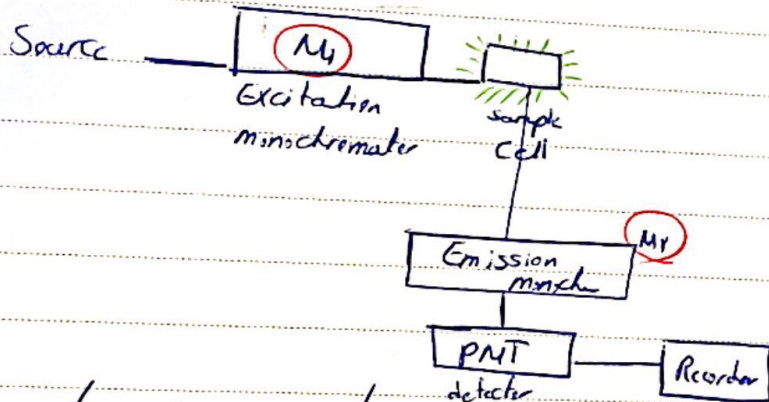 Source
M1
Excitation
monochromater
sample
Cell
Emission
PMT
detecter
Recorder